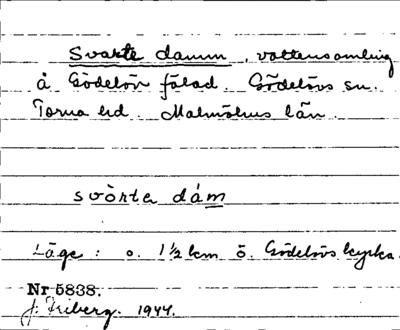 Svarte damm, vattensamling
å Gödelöv fälad. Gödelövs sn.
Torna hd. Malmöhus län.
svòrta dám
Läge: o. 1½ km ö. Gödelövs kyrka.
Nr 5838.
J. Friberg. 1944.